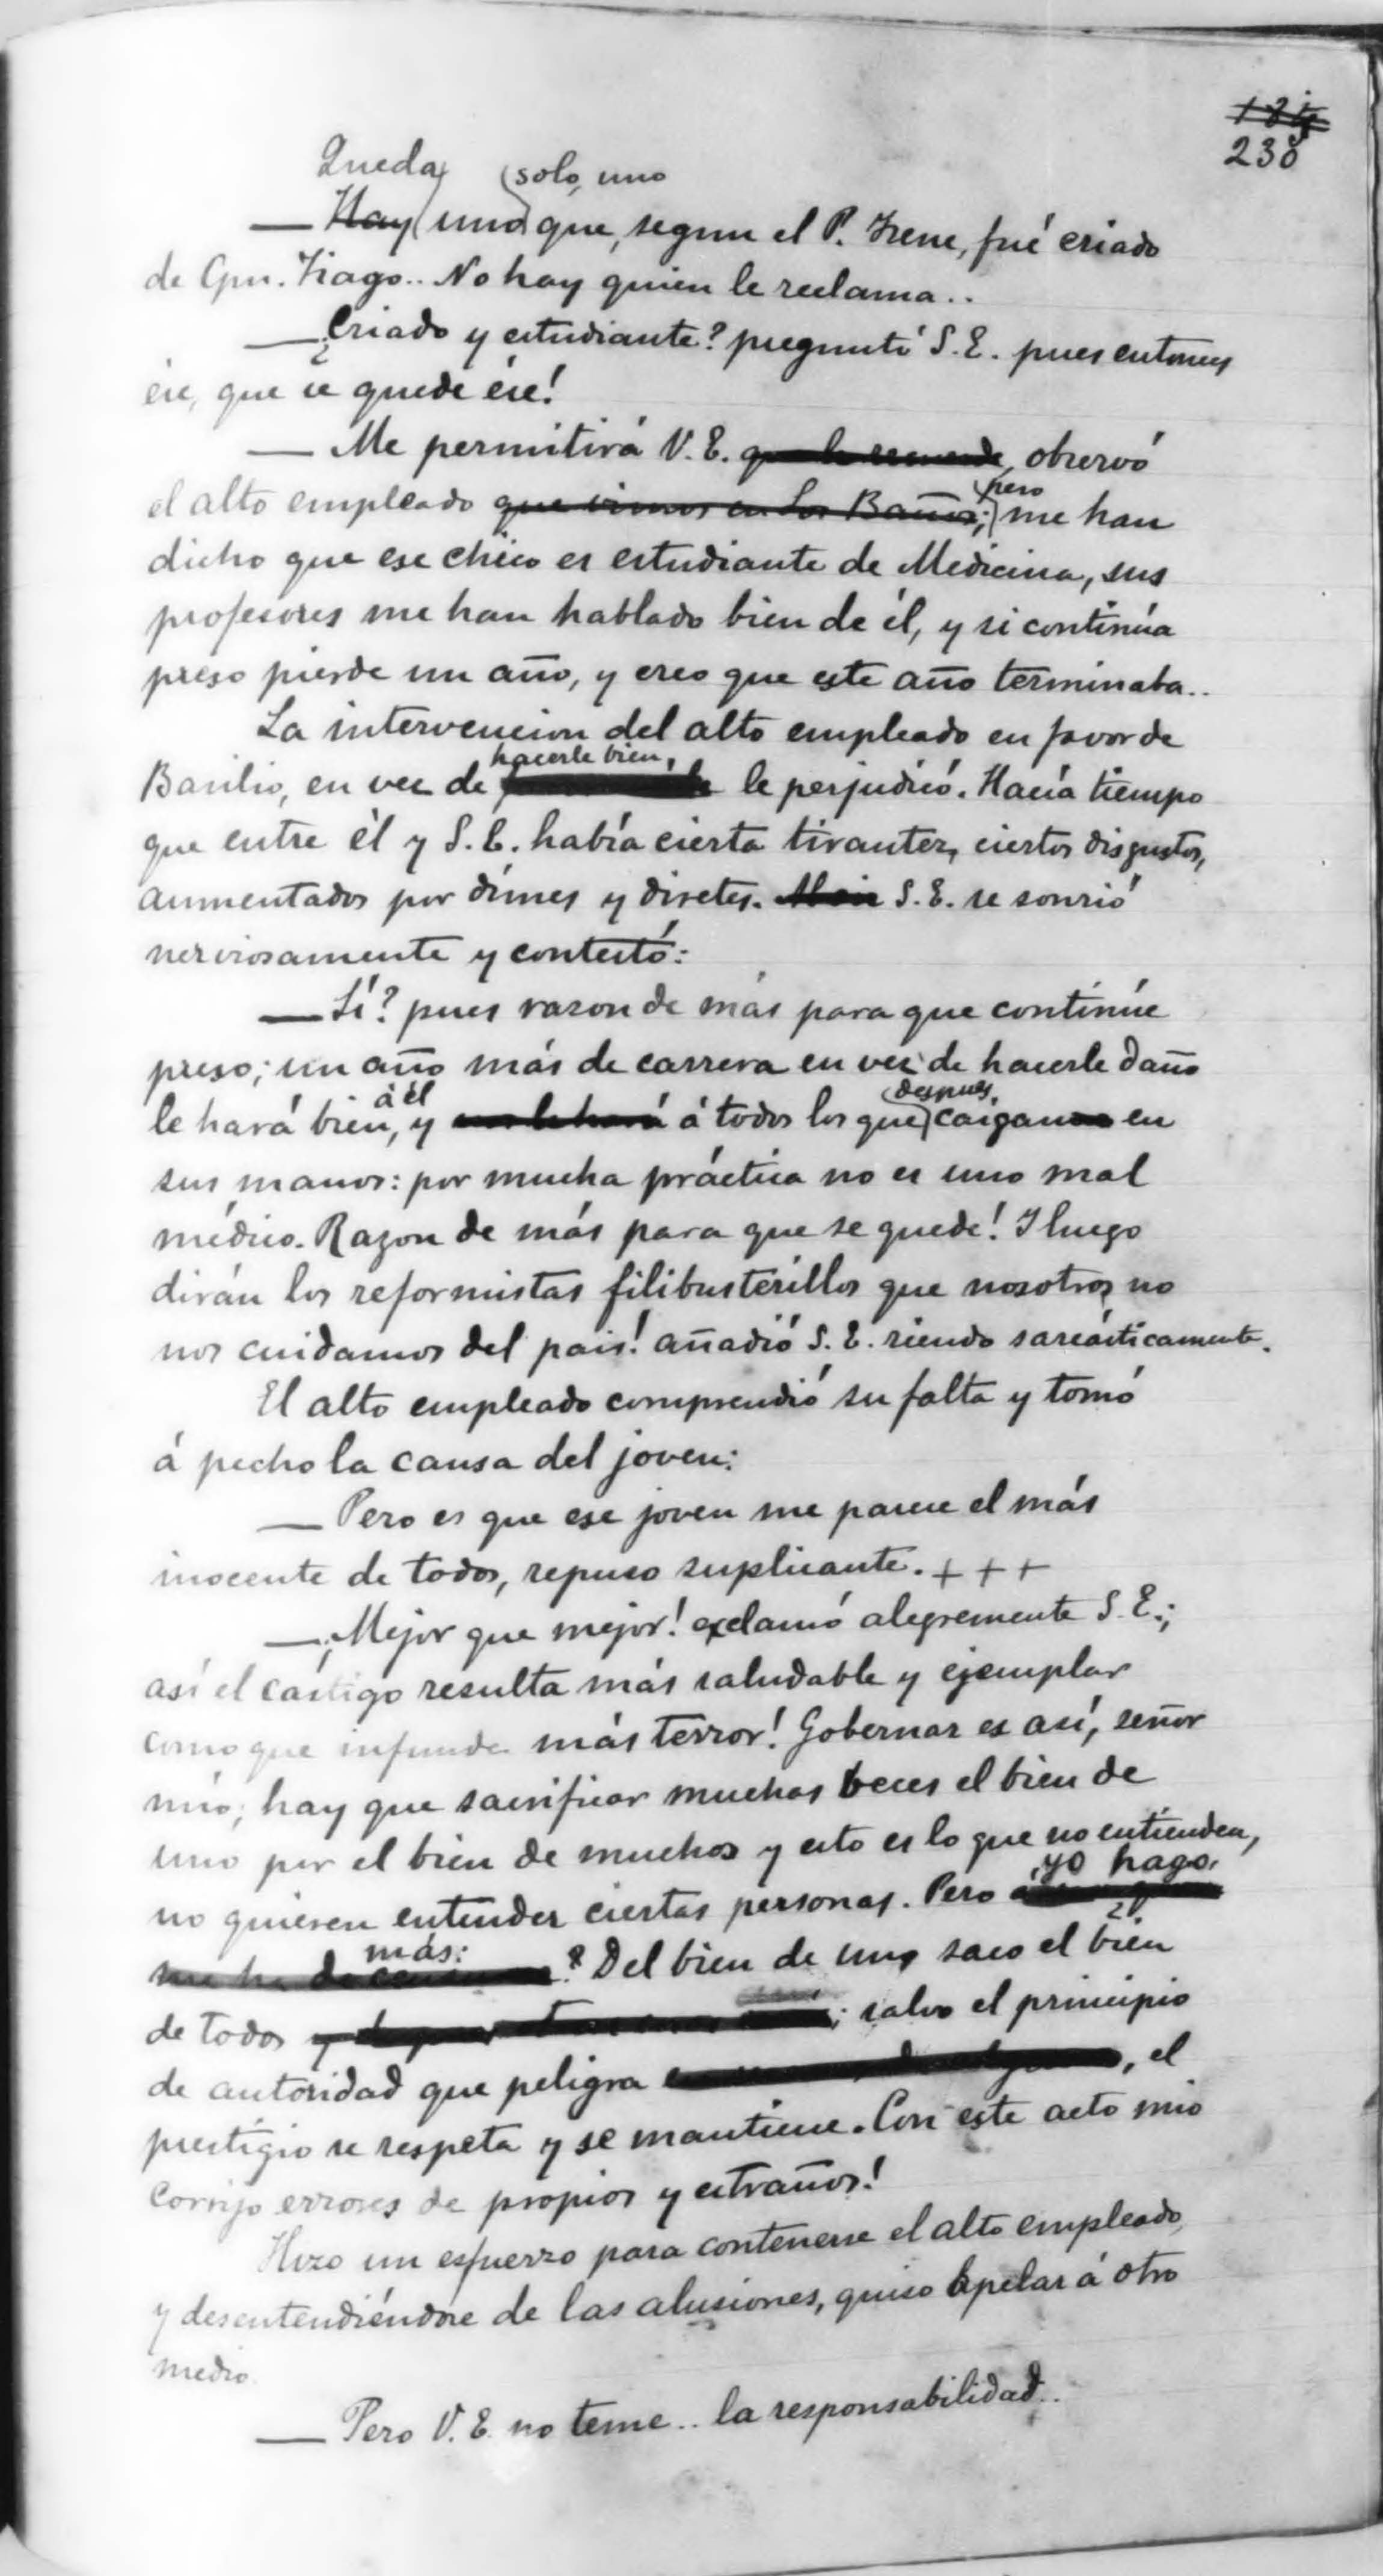 238
Queda solo, uno
— Hay uno que, segun el P. Irene, fué criado
de Cpn. Tiago.. No hay quien le reclama..
— ¿Criado y estudiante? preguntó S.E. pues entonces
ése, que se quede ése!
— Me permitirá V.E. observó
pero
el alto empleado que vimos en Los Baños; me han
dicho que ese chico es estudiante de Medicina, sus
profesores me han hablado bien de él, y si continúa
preso pierde un año, y creo que este año terminaba..
La intervencion del alto empleado en favor de
hacerle bien,
Basilio, en vez de le perjudicó. Hacía tiempo
que entre él y S.E. había cierta tirantez, ciertos disgustos,
aumentados por dímes y diretes. S.E. se sonrió
nerviosamente y contestó:
— Sí? pues razon de más para que continúe
preso; un año más de carrera en vez de hacerle daño
á él despues
le hará bien, y á todos los que caigan en
sus manos: por mucha práctica no es uno mal
médico. Razon de más para que se quede! Y luego
dirán los reformistas filibusterillos que nosotros no
nos cuidamos del pais! añadió S.E. riendo sarcásticamente.
El alto empleado comprendió su falta y tomó
á pecho la causa del joven:
— Pero es que ese joven me parece el más
inocente de todos, repuso suplicante. + + +
— ¡Mejor que mejor! exclamó alegremente S.E.;
así el castigo resulta más saludable y ejemplar
como que infunde más terror! Gobernar es así, señor
mío; hay que sacrificar muchas beces el bien de
uno por el bien de muchos y esto es lo que no entienden,
yo hago
no quieren entender ciertas personas. Pero
más:
? Del bien de uno saco el bien
de todos ; salvo el principio
de autoridad que peligra , el
prestigio se respeta y se mantiene. Con este acto mio
corrijo errores de propios y estraños!
Hizo un esfuerzo para contenerse el alto empleado,
y desentendiéndose de las alusiones, quiso apelar á otro
medio.
— Pero V.E. no teme.. la responsabilidad..